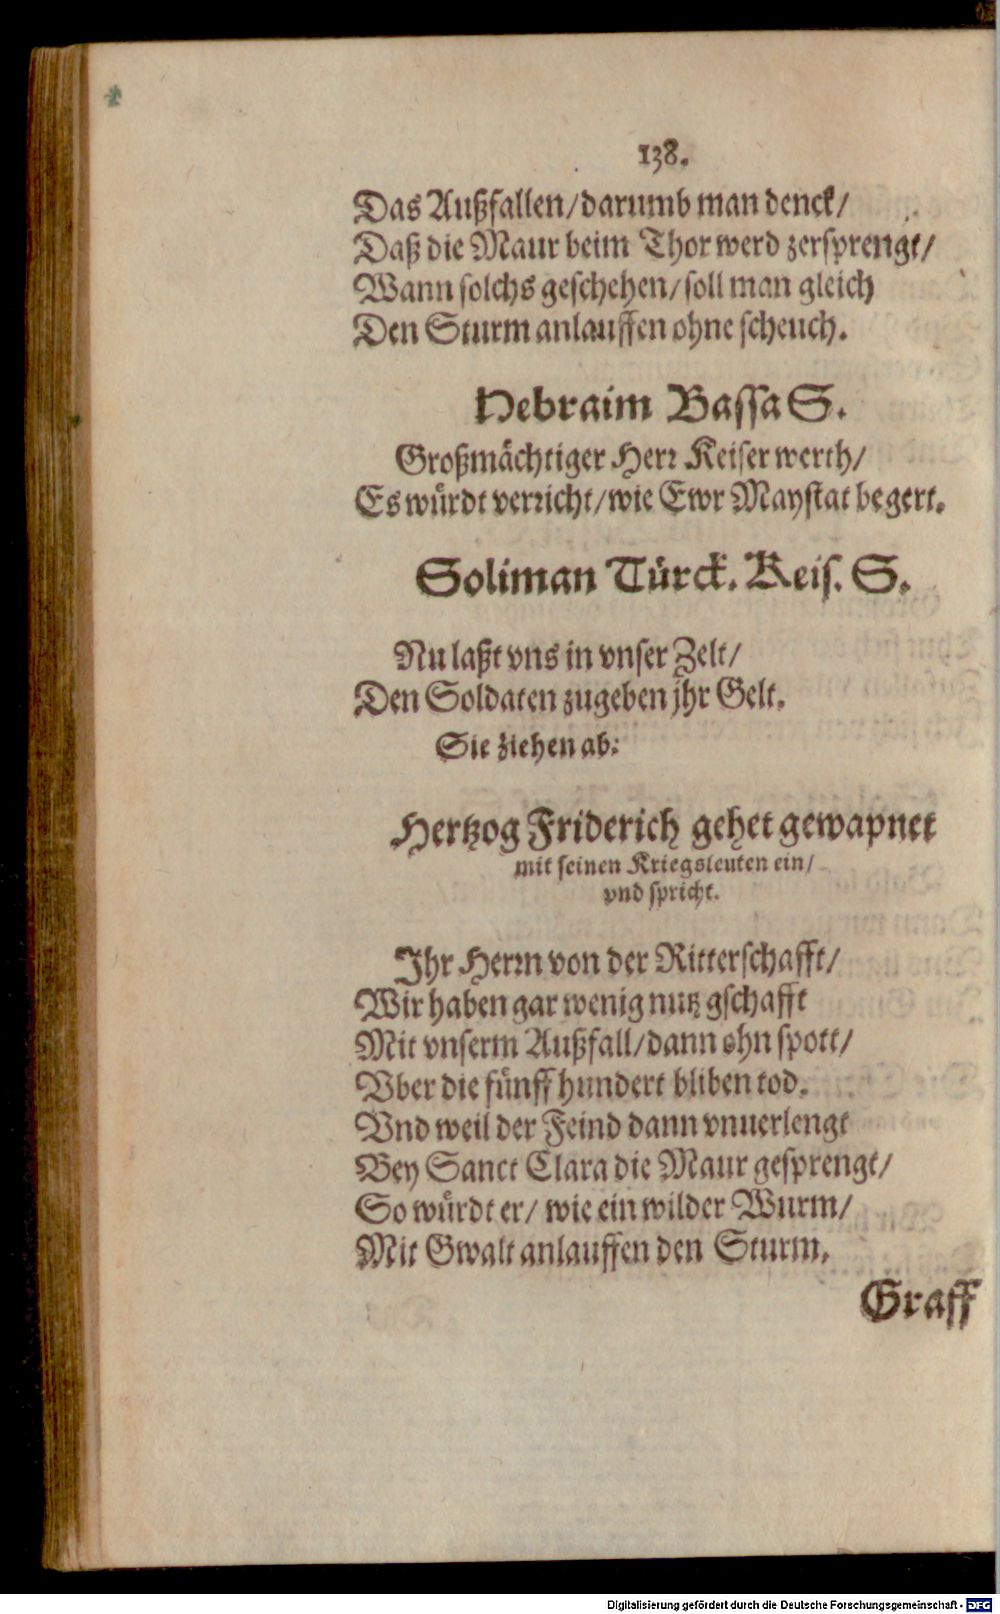 138.
Das Außfallen/darumb man denck/
Daß die Maur beim Thor werd zersprengt/
Wann solchs geschehen/soll man gleich
Den Sturm anlauffen ohne scheuch.
Hebraim Bassa S.
Großmächtiger Herr Keiser werth/
Es würdt verricht/wie Ewr Maystat begert.
Soliman Türck. Keis. S.
Nu laßt vns in vnser Zelt/
Den Soldaten zugeben jhr Gelt.
Sie ziehen ab:
Hertzog Friderich gehet gewapnet
mit seinen Kriegsleuten ein/
vnd spricht.
Ihr Herrn von der Ritterschafft/
Wir haben gar wenig nutz gschafft
Mit vnserm Außfall/dann ohn spott/
Vber die fünff hundert bliben tod.
Vnd weil der Feind dann vnuerlengt
Bey Sanct Clara die Maur gesprengt/
So würdt er/ wie ein wilder Wurm/
Mit Gwalt anlauffen den Sturm.
Graff
Digitalisierung gefördert durch die Deutsche Forschungsgemeinschaft - DFG